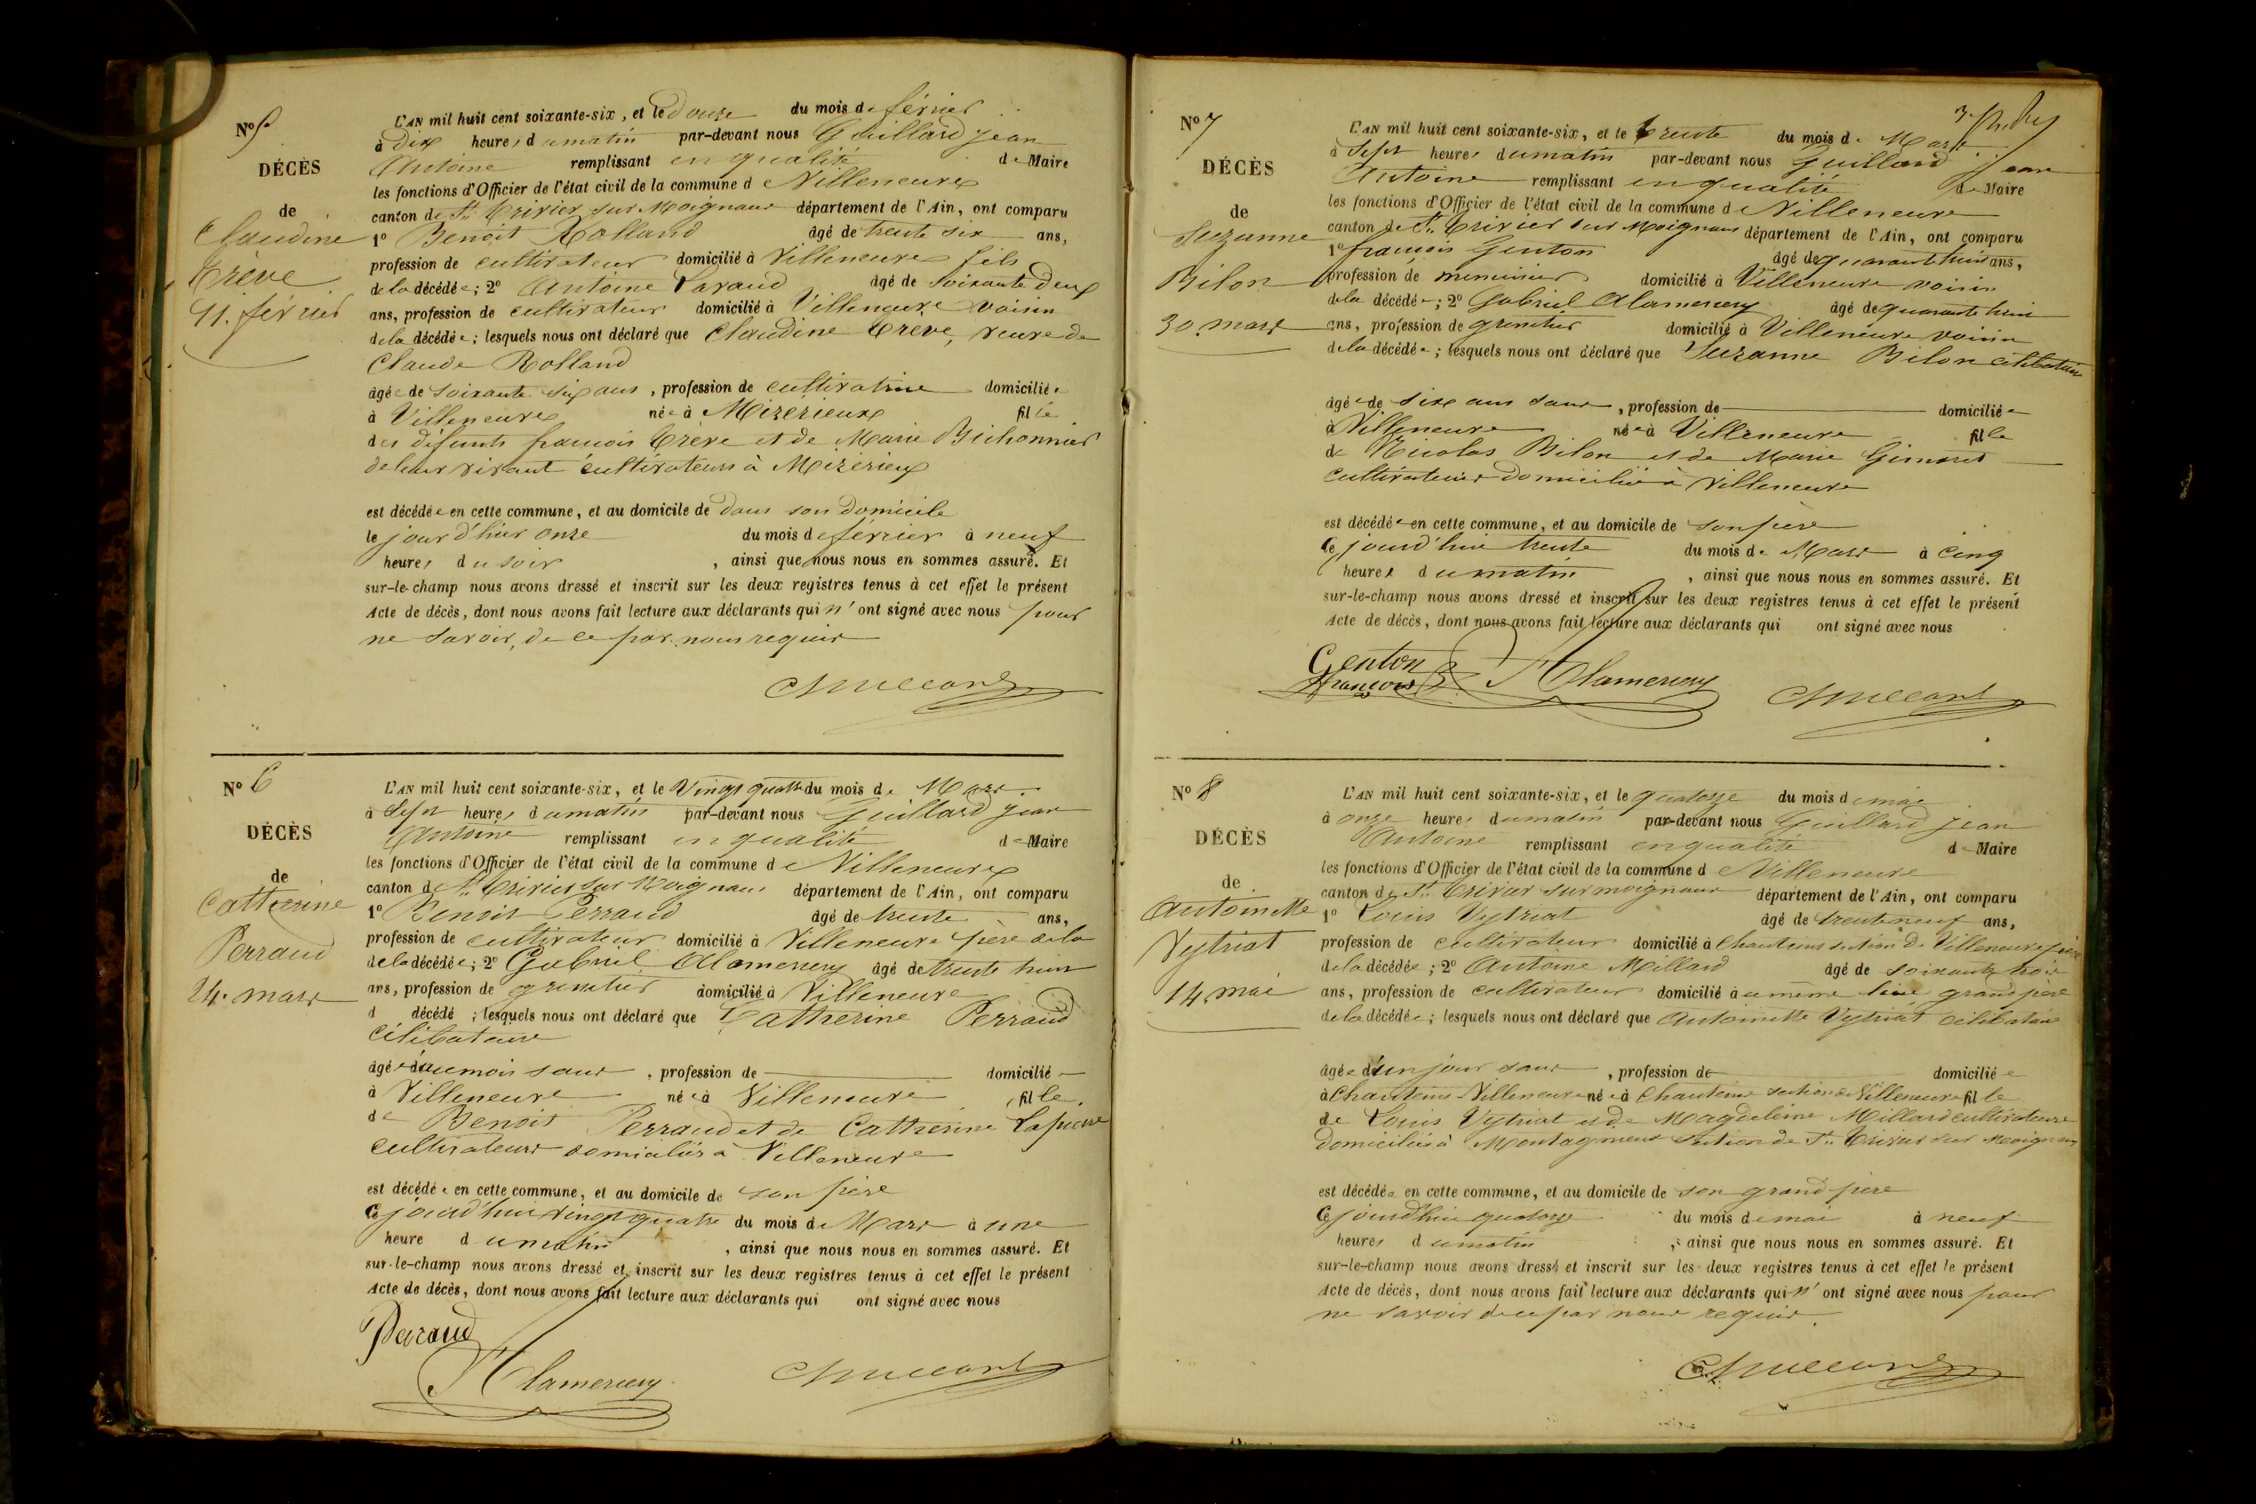 Nº 5
DÉCÈS
de
Claudine
Trève
11. février
L'AN mil huit cent soixante-six, et le douze du mois de février
à Dix heures du matin par-devant nous Guillard Jean
Antoine remplissant en qualité de Maire
les fonctions d'Officier de l'état civil de la commune de Villeneuve
canton de St. Trivier sur Moignans département de l'Ain, ont comparu
1º Benoit Rolland âgé de trente six ans,
profession de cultivateur domicilié à Villeneuve fils
de la décédée; 2º Antoine Paraud âgé de soixante deux
ans, profession de cultivateur domicilié à Villeneuve voisin
de la décédée; lesquels nous ont déclaré que Claudine Trève, veuve de
Claude Rolland
âgée de soixante six ans, profession de cultivatrice domiciliée
à Villeneuve née à Mizérieux fille
des défunts françois Trève et de Marie Bichonnier
de leur vivant cultivateurs à Mizérieux
est décédée en cette commune, et au domicile de dans son domicile
le jour d'hier onze du mois de février à neuf
heures du soir, ainsi que nous nous en sommes assuré. Et
sur-le-champ nous avons dressé et inscrit sur les deux registres tenus à cet effet le présent
Acte de décès, dont nous avons fait lecture aux déclarants qui n'ont signé avec nous pour
ne savoir, de ce par nous requis
Nº 6
DÉCÈS
de
Catherine
Perraud
24. mars
L'AN mil huit cent soixante-six, et le Vingt quatre du mois de Mars
à Sept heures du matin par-devant nous Guillard Jean
Antoine remplissant en qualité de Maire
les fonctions d'Officier de l'état civil de la commune de Villeneuve
canton de St. Trivier sur Moignans département de l'Ain, ont comparu
1º Benoit Perraud âgé de trente ans,
profession de cultivateur domicilié à Villeneuve père de la
de la décédée; 2º Gabriel Alamercery âgé de trente huit
ans, profession de grenetier domicilié à Villeneuve
d décédé ; lesquels nous ont déclaré que Catherine Perraud
célibataire
âgée d'un mois sans, profession de domicilié
à Villeneuve née à Villeneuve fille
de Benoit Perraud et de Catherine Lapierre
cultivateurs domiciliés à Villeneuve
est décédée en cette commune, et au domicile de son père
Cejourd'hui vingt quatre du mois de Mars à une
heure du matin, ainsi que nous nous en sommes assuré. Et
sur-le-champ nous avons dressé et inscrit sur les deux registres tenus à cet effet le présent
Acte de décès, dont nous avons fait lecture aux déclarants qui ont signé avec nous
Perraud
Alamercery
Nº 7
DÉCÈS
de
Suzanne
Bilon
30 mars
L'AN mil huit cent soixante-six, et le trente du mois de Mars
à Sept heures du matin par-devant nous Guillard Jean
Antoine remplissant en qualité de Maire
les fonctions d'Officier de l'état civil de la commune de Villeneuve
canton de St. Trivier sur Moignans département de l'Ain, ont comparu
1º françois Genton âgé de quarante huit ans,
profession de menuisier domicilié à Villeneuve voisin
de la décédée; 2º Gabriel Alamercery âgé de quarante huit
ans, profession de grenetier domicilié à Villeneuve voisin
de la décédée; lesquels nous ont déclaré que Suzanne Bilon célibataire
âgée de sixe ans sans, profession de domiciliée
à Villeneuve née à Villeneuve fille
de Nicolas Bilon et de Marie
cultivateurs domiciliés à Villeneuve
est décédée en cette commune, et au domicile de son père
Cejourd'hui trente du mois de Mars à Cinq
heures du matin, ainsi que nous nous en sommes assuré. Et
sur-le-champ nous avons dressé et inscrit sur les deux registres tenus à cet effet le présent
Acte de décès, dont nous avons fait lecture aux déclarants qui ont signé avec nous
Genton
françois
Alamercery
Nº 8
DÉCÈS
de
Antoinette
Vytriat
14 mai
L'AN mil huit cent soixante-six, et le quatorze du mois de mai
à onze heures du matin par-devant nous Guillard Jean
Antoine remplissant en qualité de Maire
les fonctions d'Officier de l'état civil de la commune de Villeneuve
canton de St. Trivier sur moignans département de l'Ain, ont comparu
1º Louis Vytriat âgé de trente neuf ans,
profession de cultivateur domicilié à Chanteins section de Villeneuve père
de la décédée; 2º Antoine Millard âgé de soixante trois
ans, profession de cultivateur domicilié au même lieu grand père
de la décédée; lesquels nous ont déclaré que Antoinette Vytriat célibataire
âgée d'un jour sans, profession de domiciliée
à Chanteins Villeneuve née à Chanteins section de Villeneuve fille
de Louis Vytriat et de Magdeleine Millard cultivateurs
domiciliés à Montagneux section de St. Trivier sur Moignans
est décédée en cette commune, et au domicile de son grand père
Cejourd'hui quatorze du mois de mai à neuf
heures du matin, ainsi que nous nous en sommes assuré. Et
sur-le-champ nous avons dressé et inscrit sur les deux registres tenus à cet effet le présent
Acte de décès, dont nous avons fait lecture aux déclarants qui n'ont signé avec nous pour
ne savoir de ce par nous requis.